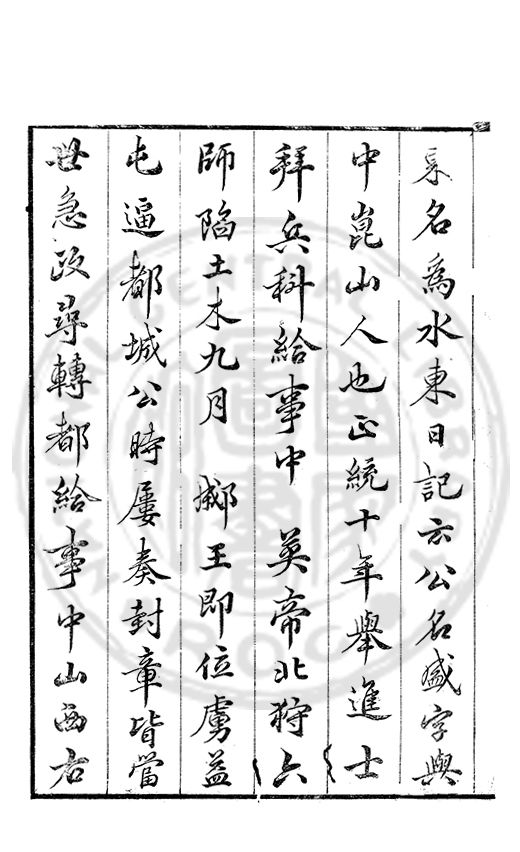 名為水東日記云公名盛字與
中崑山人也正統十年舉進士
拜兵科給事中 英帝北狩六
師陷土木九月 郕王即位虜益
屯逼都城公時屢奏封章皆當
世急政尋轉都給事中山西右